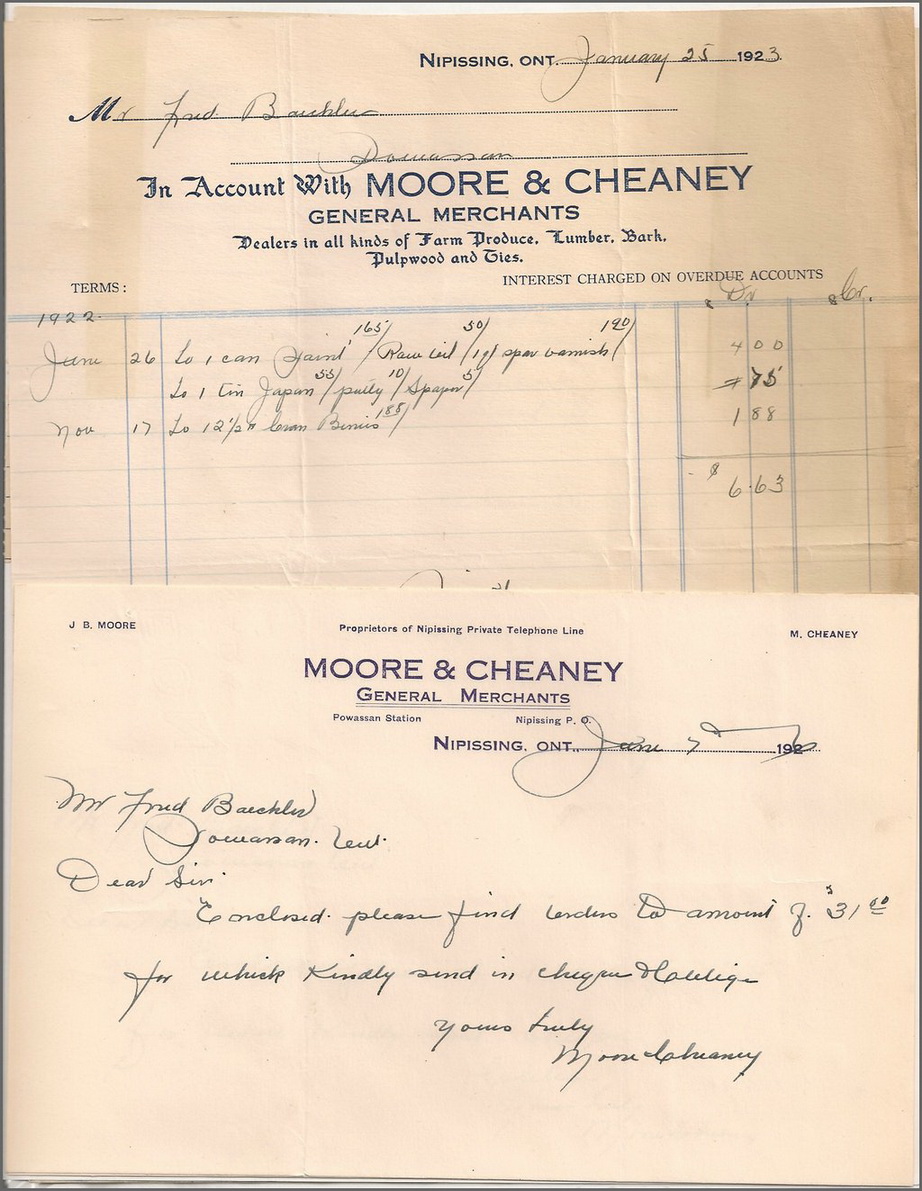 NIPISSING, ONT. January 25 1923
Mr Fred Baechler
Powassan
In Account With MOORE & CHEANEY
GENERAL MERCHANTS
Dealers in all kinds of Farm Produce, Lumber, Bark,
Pulpwood and Ties.
INTEREST CHARGED ON OVERDUE ACCOUNTS
TERMS: Dr. Cr.
1922
June 26 To 1 can Paint 165/ Raw oil 50/ spar varnish 190/ 4 00
To 1 Tin Japan 55/ putty 10/ S paper 5/ 75
Nov 17 To 12 1/2 # 188/ 1 88
$ 6.63
J B. MOORE Proprietors of Nipissing Private Telephone Line M. CHEANEY
MOORE & CHEANEY
GENERAL MERCHANTS
Powassan Station Nipissing P. O.
NIPISSING, ONT., June 7 192
Mr Fred Baechler
Powassan. Ont.
Dear Sir
Enclosed please find orders to amount of $31 00
for which Kindly send in cheque & oblige
Yours truly
Moore & Cheaney